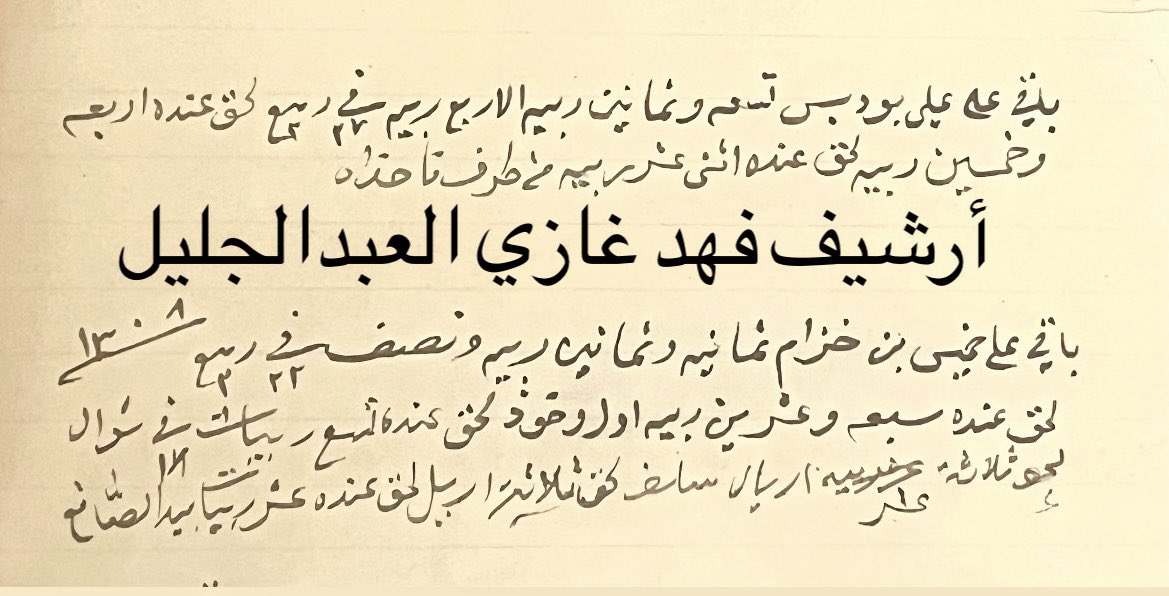 باقي على علي بودبس تسعه وثمانين ربيه الا ربع ربيه في ٢٧ ربيع ٢ لحق عنده اربعه
وخمسين ربيه لحق عنده اثنى عشر ربيه من طرف
أرشيف فهد غازي العبدالجليل
باقي على خميس بن خزام ثمانيه وثمانين ربيه ونصف في ٢٢ ربيع ٣ سنة ١٣٠٨
لحق عنده سبعه وعشرين ربيه اول وخوذ لحق عنده تسع ربيات في شوال
ثلاثة اريال لحق ثلاثة اريل لحق عنده عشر ربيات بيد الصانع